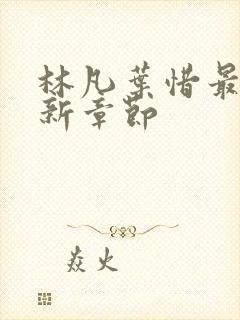 林凡葉惜最
新章節
焱火